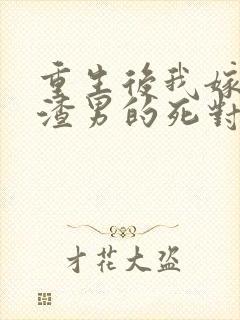 重生後我嫁
渣男的死對
才花大盗